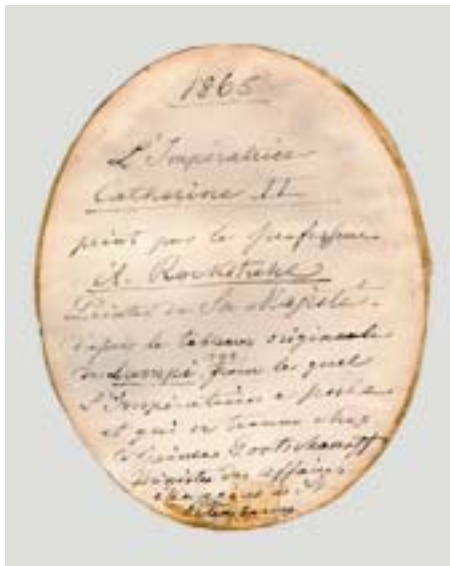 1865
L'Impératrice
Catherine II
peint par le professeur
A. Rockstuhl
Peintre de Sa Majesté
d'après le tableau original
de Lampi pour lequel
L'Impératrice a posé
et qui se trouve chez
le Prince Gortschakoff
Ministre des affaires